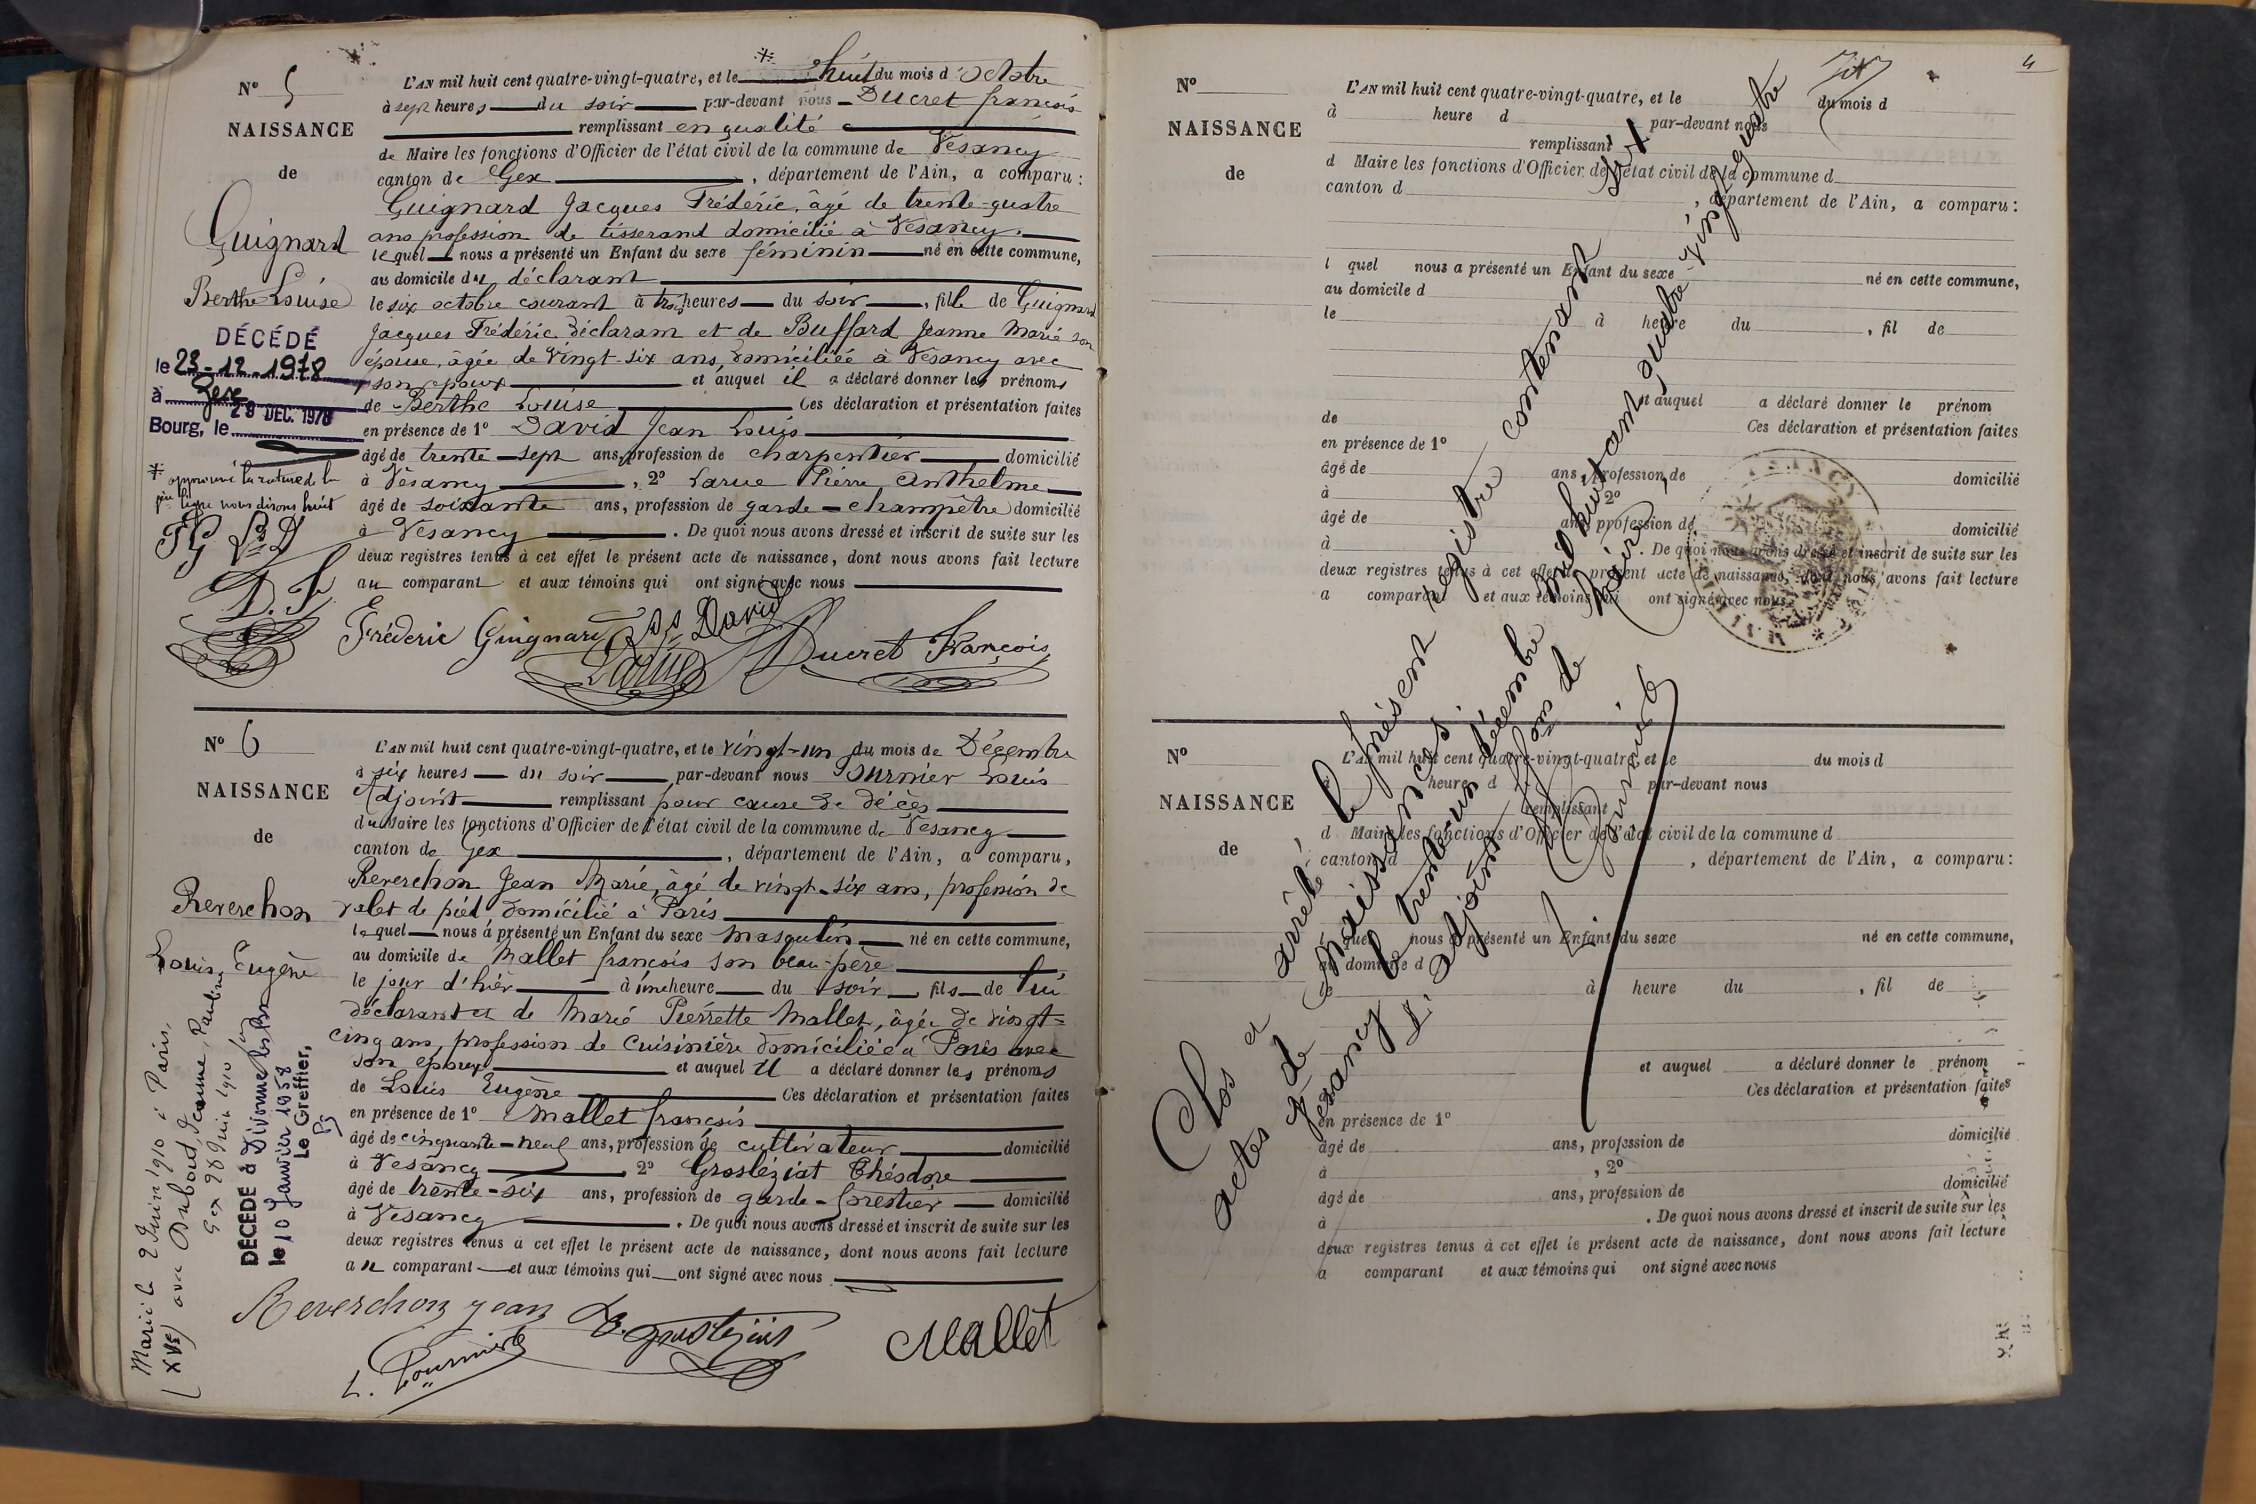 Nº 5
NAISSANCE
de
Guignard
Berthe Louise
DÉCÉDÉ
le 23-12-1978
à Gex
29 DEC. 1978
Bourg, le
* approuvé la rature de la
1ère ligne nous disons huit
FG
L'AN mil huit cent quatre-vingt-quatre, et le * huit du mois d'octobre
à sept heures du soir par-devant nous Ducret françois
remplissant en qualité
de Maire les fonctions d'Officier de l'état civil de la commune de Vesancy
canton de Gex, département de l'Ain, a comparu :
Guignard Jacques Frédéric, âgé de trente-quatre
ans profession de tisserand domicilié à Vesancy.
lequel nous a présenté un Enfant du sexe féminin né en cette commune,
au domicile du déclarant
le six octobre courant à trois heures du soir, fille de Guignard
Jacques Frédéric déclarant et de Buffard Jeanne Marie son
épouse, âgée de vingt-six ans, domiciliée à Vesancy avec
son epoux et auquel il a déclaré donner les prénoms
de Berthe Louise Ces déclaration et présentation faites
en présence de 1º David Jean Louis
âgé de trente-sept ans, profession de charpentier domicilié
à Vesancy, 2º Larue Pierre Anthelme
âgé de soixante ans, profession de garde-champêtre domicilié
à Vesancy. De quoi nous avons dressé et inscrit de suite sur les
deux registres tenus à cet effet le présent acte de naissance, dont nous avons fait lecture
au comparant et aux témoins qui ont signé avec nous
Fréderic Guignard David Ducret François
Larue
Nº 6
NAISSANCE
de
Reverchon
Louis Eugène
DÉCÉDÉ à Divonne les bains
le 10 Janvier 1958
Le Greffier,
Marié le 2 Juin 1910 à Paris,
(XVIe) avec Dubout, Jeanne, Pauline
Gex 28 Juin 1910
L'AN mil huit cent quatre-vingt-quatre, et le vingt-un du mois de Décembre
à six heures du soir par-devant nous Fournier Louis
Adjoint remplissant pour cause de décès
du Maire les fonctions d'Officier de l'état civil de la commune de Vesancy
canton de Gex, département de l'Ain, a comparu,
Reverchon Jean Marie, âgé de vingt-six ans, profession de
valet de pied, domicilié à Paris
lequel nous a présenté un Enfant du sexe masculin né en cette commune,
au domicile de Mallet françois son beau-père
le jour d'hier à une heure du soir, fils de lui
déclarant et de Marie Pierrette Mallet, âgée de vingt-
cinq ans, profession de cuisinière domiciliée à Paris avec
son epoux et auquel il a déclaré donner les prénoms
de Louis Eugène Ces déclaration et présentation faites
en présence de 1º Mallet françois
âgé de cinquante-neuf ans, profession de cultivateur domicilié
à Vesancy 2º Grosléziat Théodore
âgé de trente-six ans, profession de garde-forestier domicilié
à Vesancy. De quoi nous avons dressé et inscrit de suite sur les
deux registres tenus à cet effet le présent acte de naissance, dont nous avons fait lecture
au comparant et aux témoins qui ont signé avec nous
Reverchon jean
L. Fournier
Mallet
4
Nº
NAISSANCE
de
L'AN mil huit cent quatre-vingt-quatre, et le du mois d
à heure d par-devant nous
remplissant
d Maire les fonctions d'Officier de l'état civil de la commune d
canton d, département de l'Ain, a comparu :
l quel nous a présenté un Enfant du sexe né en cette commune,
au domicile d
le à heure du, fil de
et auquel a déclaré donner le prénom
de Ces déclaration et présentation faites
en présence de 1º
âgé de ans, profession de domicilié
à 2º
âgé de ans, profession de domicilié
à. De quoi nous avons dressé et inscrit de suite sur les
deux registres tenus à cet effet le présent acte de naissance, dont nous avons fait lecture
a comparant et aux témoins qui ont signé avec nous
Clos et arrêté le présent registre contenant six
actes de Naissances.
Vesancy le trente-un décembre mil huit cent quatre-vingt-quatre
L'adjoint f. fons de Maire,
L. Fournier
Nº
NAISSANCE
de
L'AN mil huit cent quatre-vingt-quatre, et le du mois d
heure d par-devant nous
remplissant
d Maire les fonctions d'Officier de l'état civil de la commune d
canton d, département de l'Ain, a comparu :
quel nous a présenté un Enfant du sexe né en cette commune,
au domicile d
le à heure du, fil de
et auquel a déclaré donner le prénom
Ces déclaration et présentation faites
en présence de 1º
âgé de ans, profession de domicilié
à, 2º
âgé de ans, profession de domicilié
à. De quoi nous avons dressé et inscrit de suite sur les
deux registres tenus à cet effet le présent acte de naissance, dont nous avons fait lecture
a comparant et aux témoins qui ont signé avec nous